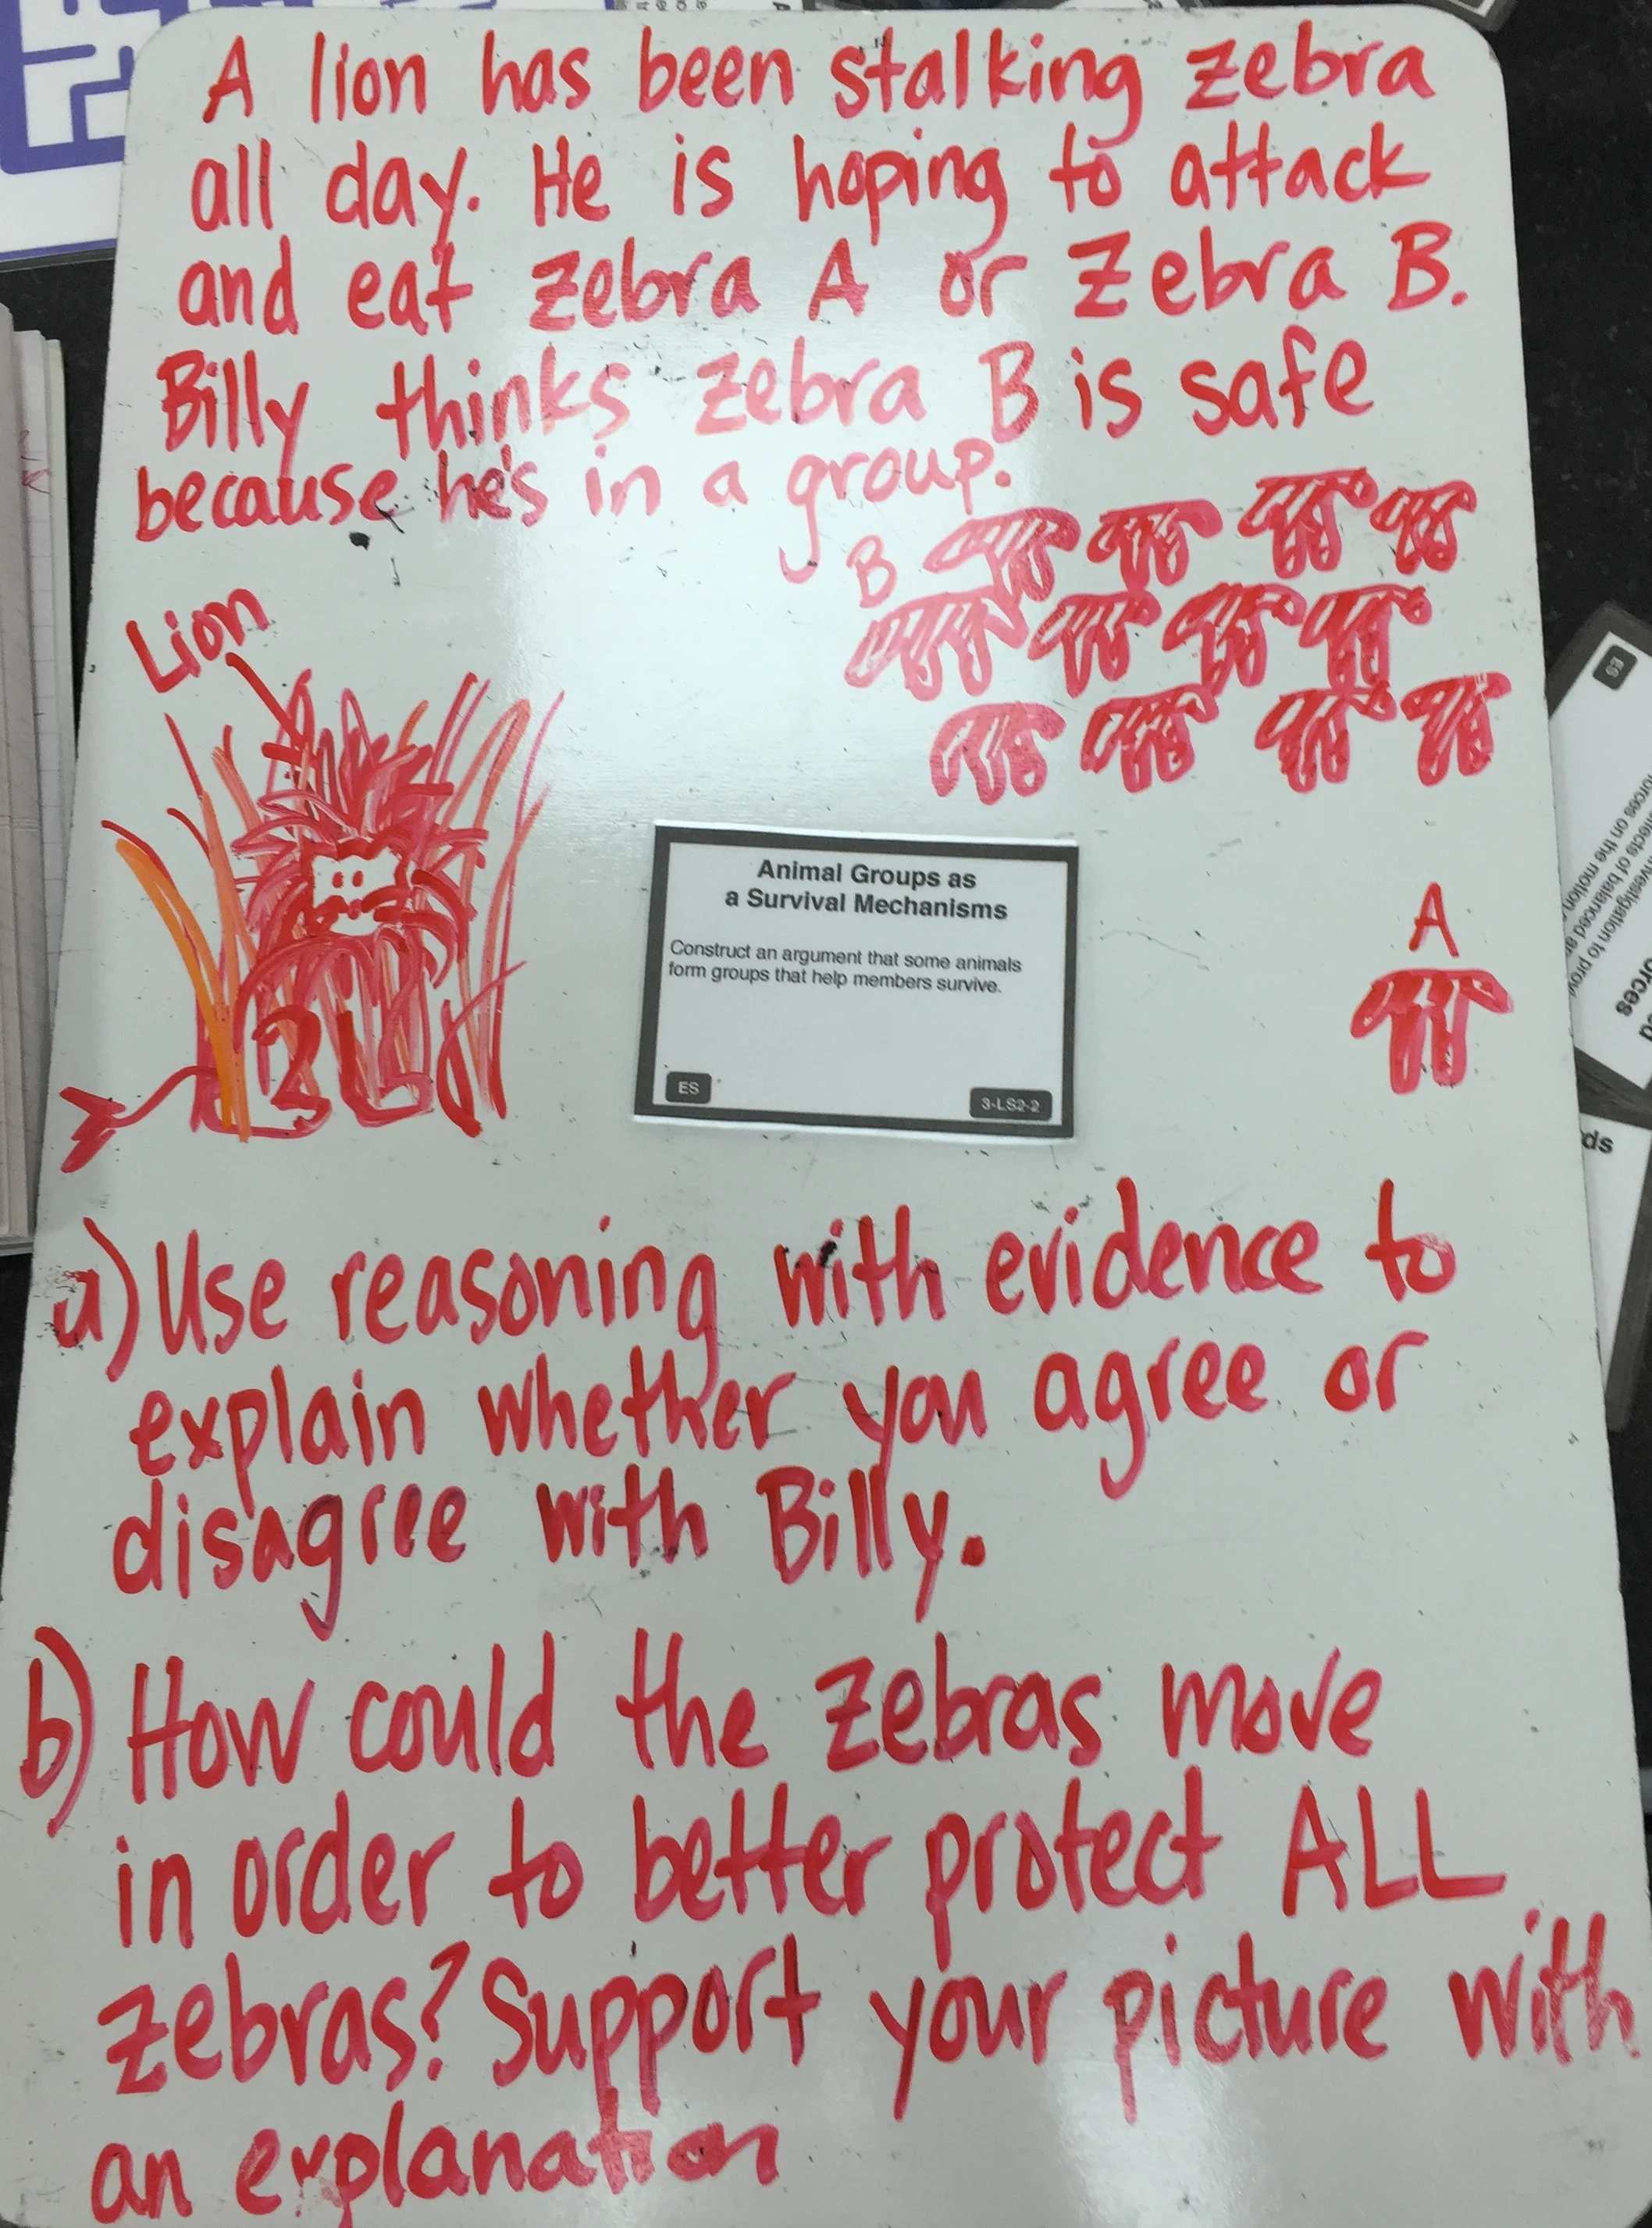 A lion has been stalking zebra
all day. He is hoping to attack
and eat zebra A or zebra B.
Billy thinks zebra B is safe
because he's in a group.
B
Lion
Animal Groups as
a Survival Mechanisms
Construct an argument that some animals
form groups that help members survive.
ES
3-LS2-2
A
a) Use reasoning with evidence to
explain whether you agree or
disagree with Billy.
b) How could the zebras move
in order to better protect ALL
zebras? Support your picture with
an explanation
ES
forces on the motion
ds